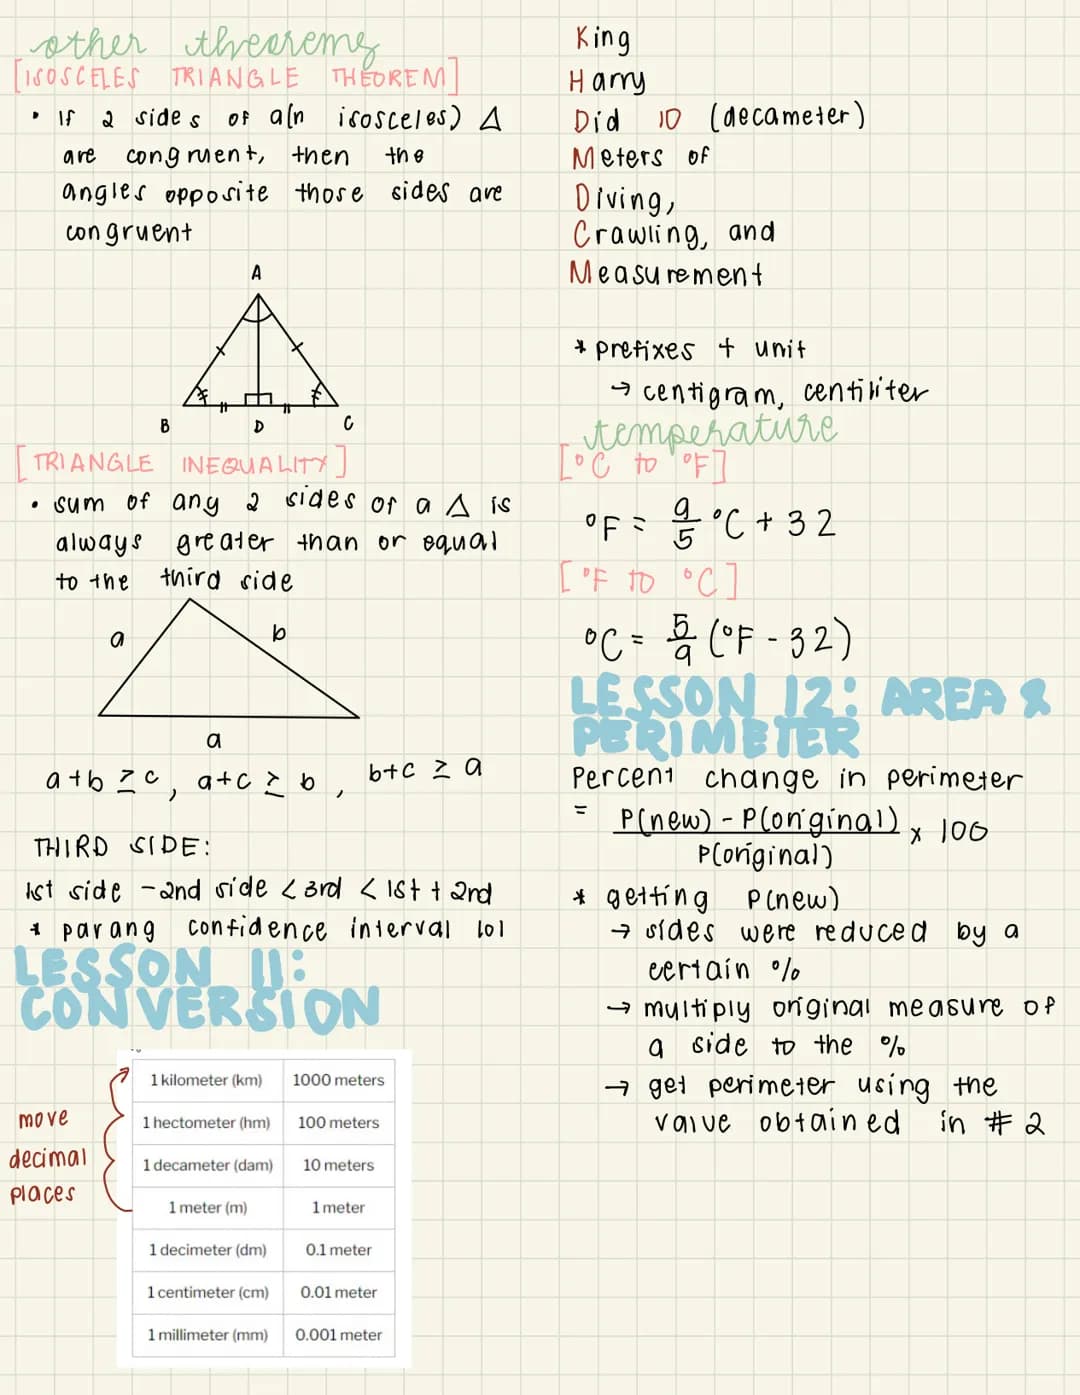 other thearems
[ISOSCELES TRIANGLE THEOREM]
• If 2 sides of a(n isosceles) Δ
are congruent, then the
angles opposite those sides are
congruent
A
B
D
C
[TRIANGLE INEQUALITY]
• sum of any 2 sides of a Δ is
always greater than or equal
to the third side
a
b
a
a+b ≥ c, a+c ≥ b, b+c ≥ a
THIRD SIDE:
1st side - 2nd side < 3rd < 1st + 2nd
* parang confidence interval lol
LESSON 11:
CONVERSION
move
decimal
places
1 kilometer (km) 1000 meters
1 hectometer (hm) 100 meters
1 decameter (dam) 10 meters
1 meter (m) 1 meter
1 decimeter (dm) 0.1 meter
1 centimeter (cm) 0.01 meter
1 millimeter (mm) 0.001 meter
King
Harry
Did 10 (decameter)
Meters of
Diving,
Crawling, and
Measurement
* prefixes + unit
→ centigram, centiliter
temperature
[°C to °F]
°F = 9/5 °C + 32
[°F to °C]
°C = 5/9 (°F - 32)
LESSON 12: AREA &
PERIMETER
Percent change in perimeter
= P(new) - P(original) x 100
P(original)
* getting P(new)
→ sides were reduced by a
certain %
→ multiply original measure of
a side to the %
→ get perimeter using the
value obtained in # 2